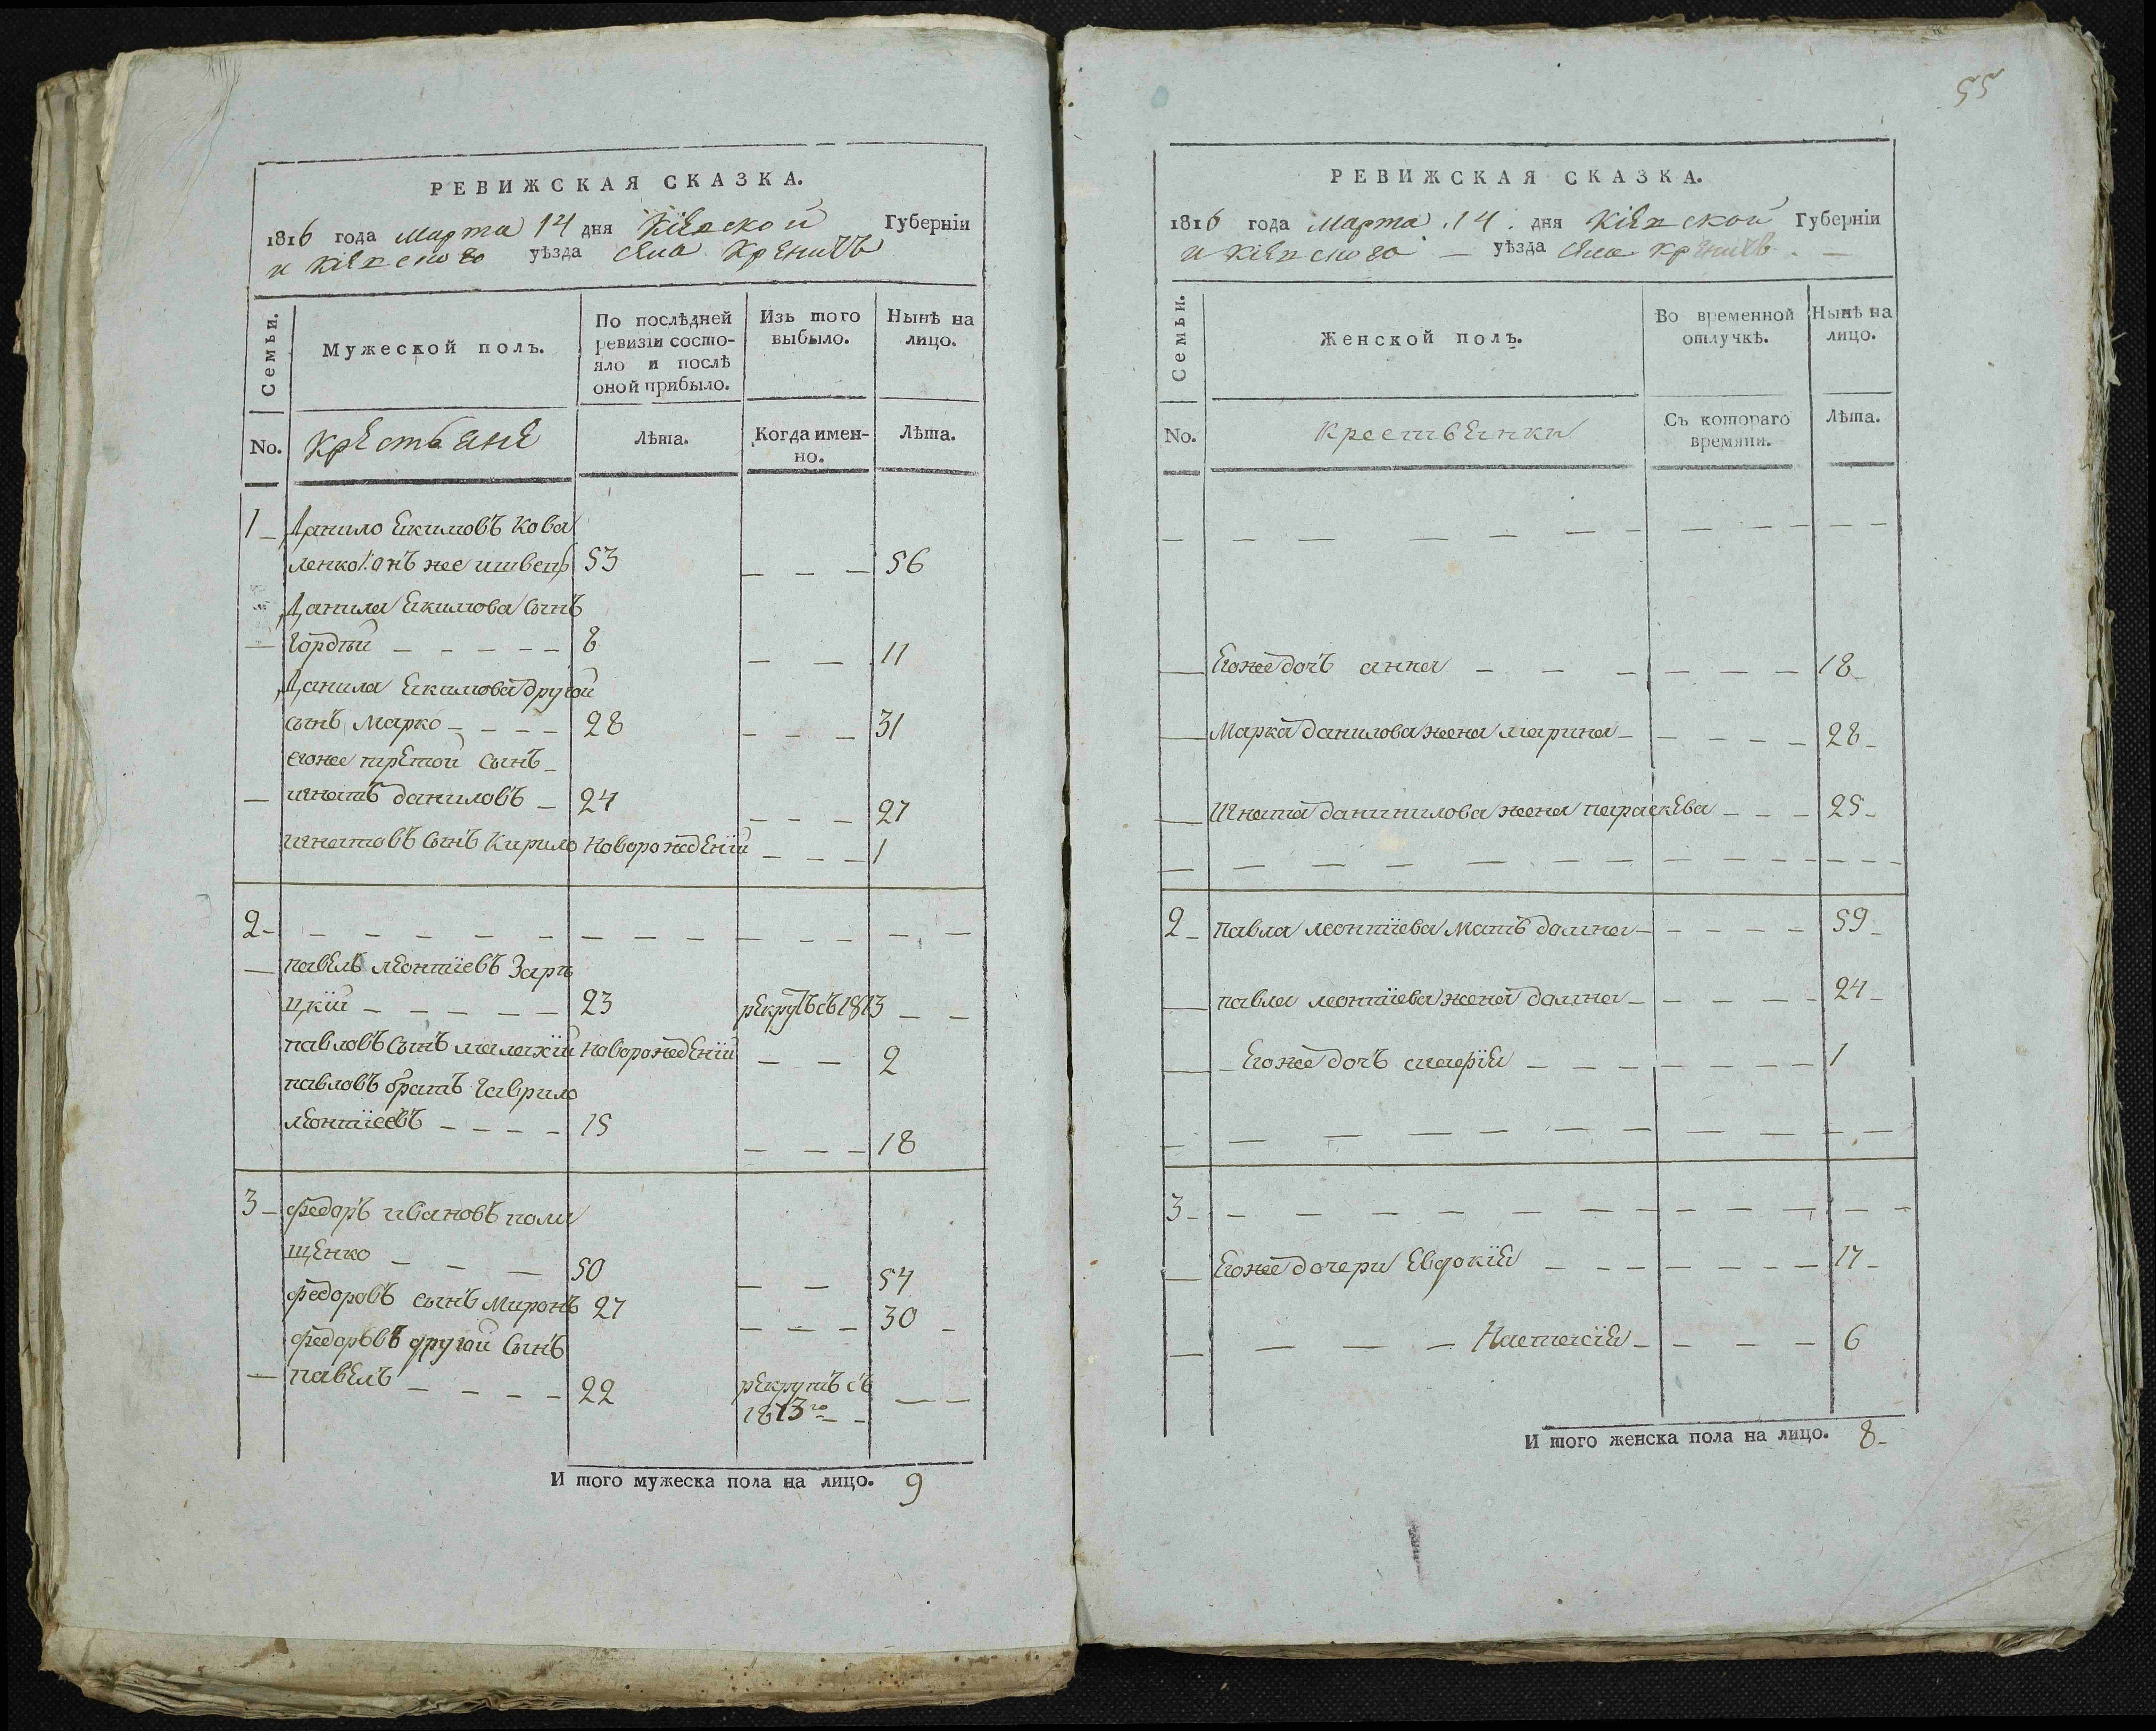 РЕВИЖСКАЯ СКАЗКА.
1816 года Марта 14 дня Кіевской Губерніи
и Кіевского уѣзда села Креничъ
Семьи.
Мужеской полъ.
По послѣдней ревизіи состояло и послѣ оной прибыло.
Изъ того выбыло.
Нынѣ на лицо.
No.
крестьяне
Лѣта.
Когда именно.
Лѣта.
1 Данило Екимовъ Кова
ленко 53 56
Данила Екимова сынъ
Гордѣй 8 11
Данила Екимова другой
сынъ Марко 28 31
егоже третой сынъ
игнатъ даниловъ 24 27
игнатовъ сынъ Кирило новорожденій 1
2
павелъ леонтіевъ Зарѣ
цкій 23 рекрутъ съ 1813
павловъ сынъ малахій новорожденій 2
павловъ братъ Гаврило
леонтіевъ 15 18
3 федоръ ивановъ поли
щенко 50 54
федоровъ сынъ Миронъ 27 30
федоровъ другой сынъ
павелъ 22 рекрутъ съ
1813го
И того мужеска пола на лицо. 9
55
РЕВИЖСКАЯ СКАЗКА.
1816 года марта 14 дня Кіевской Губерніи
и Кіевского уѣзда села Креничъ
Семьи.
Женской полъ.
Во временной отлучкѣ.
Нынѣ на лицо.
No.
крестьянки
Съ котораго времяни.
Лѣта.
Егоже дочъ анна 18
Марка данилова жена марина 28
Игната данинилова жена параскева 25
2 павла леонтіева мать домна 59
павла леонтіева жена домна 24
Егоже дочъ марія 1
3
Егоже дочери Евдокія 17
Настасія 6
И того женска пола на лицо. 8